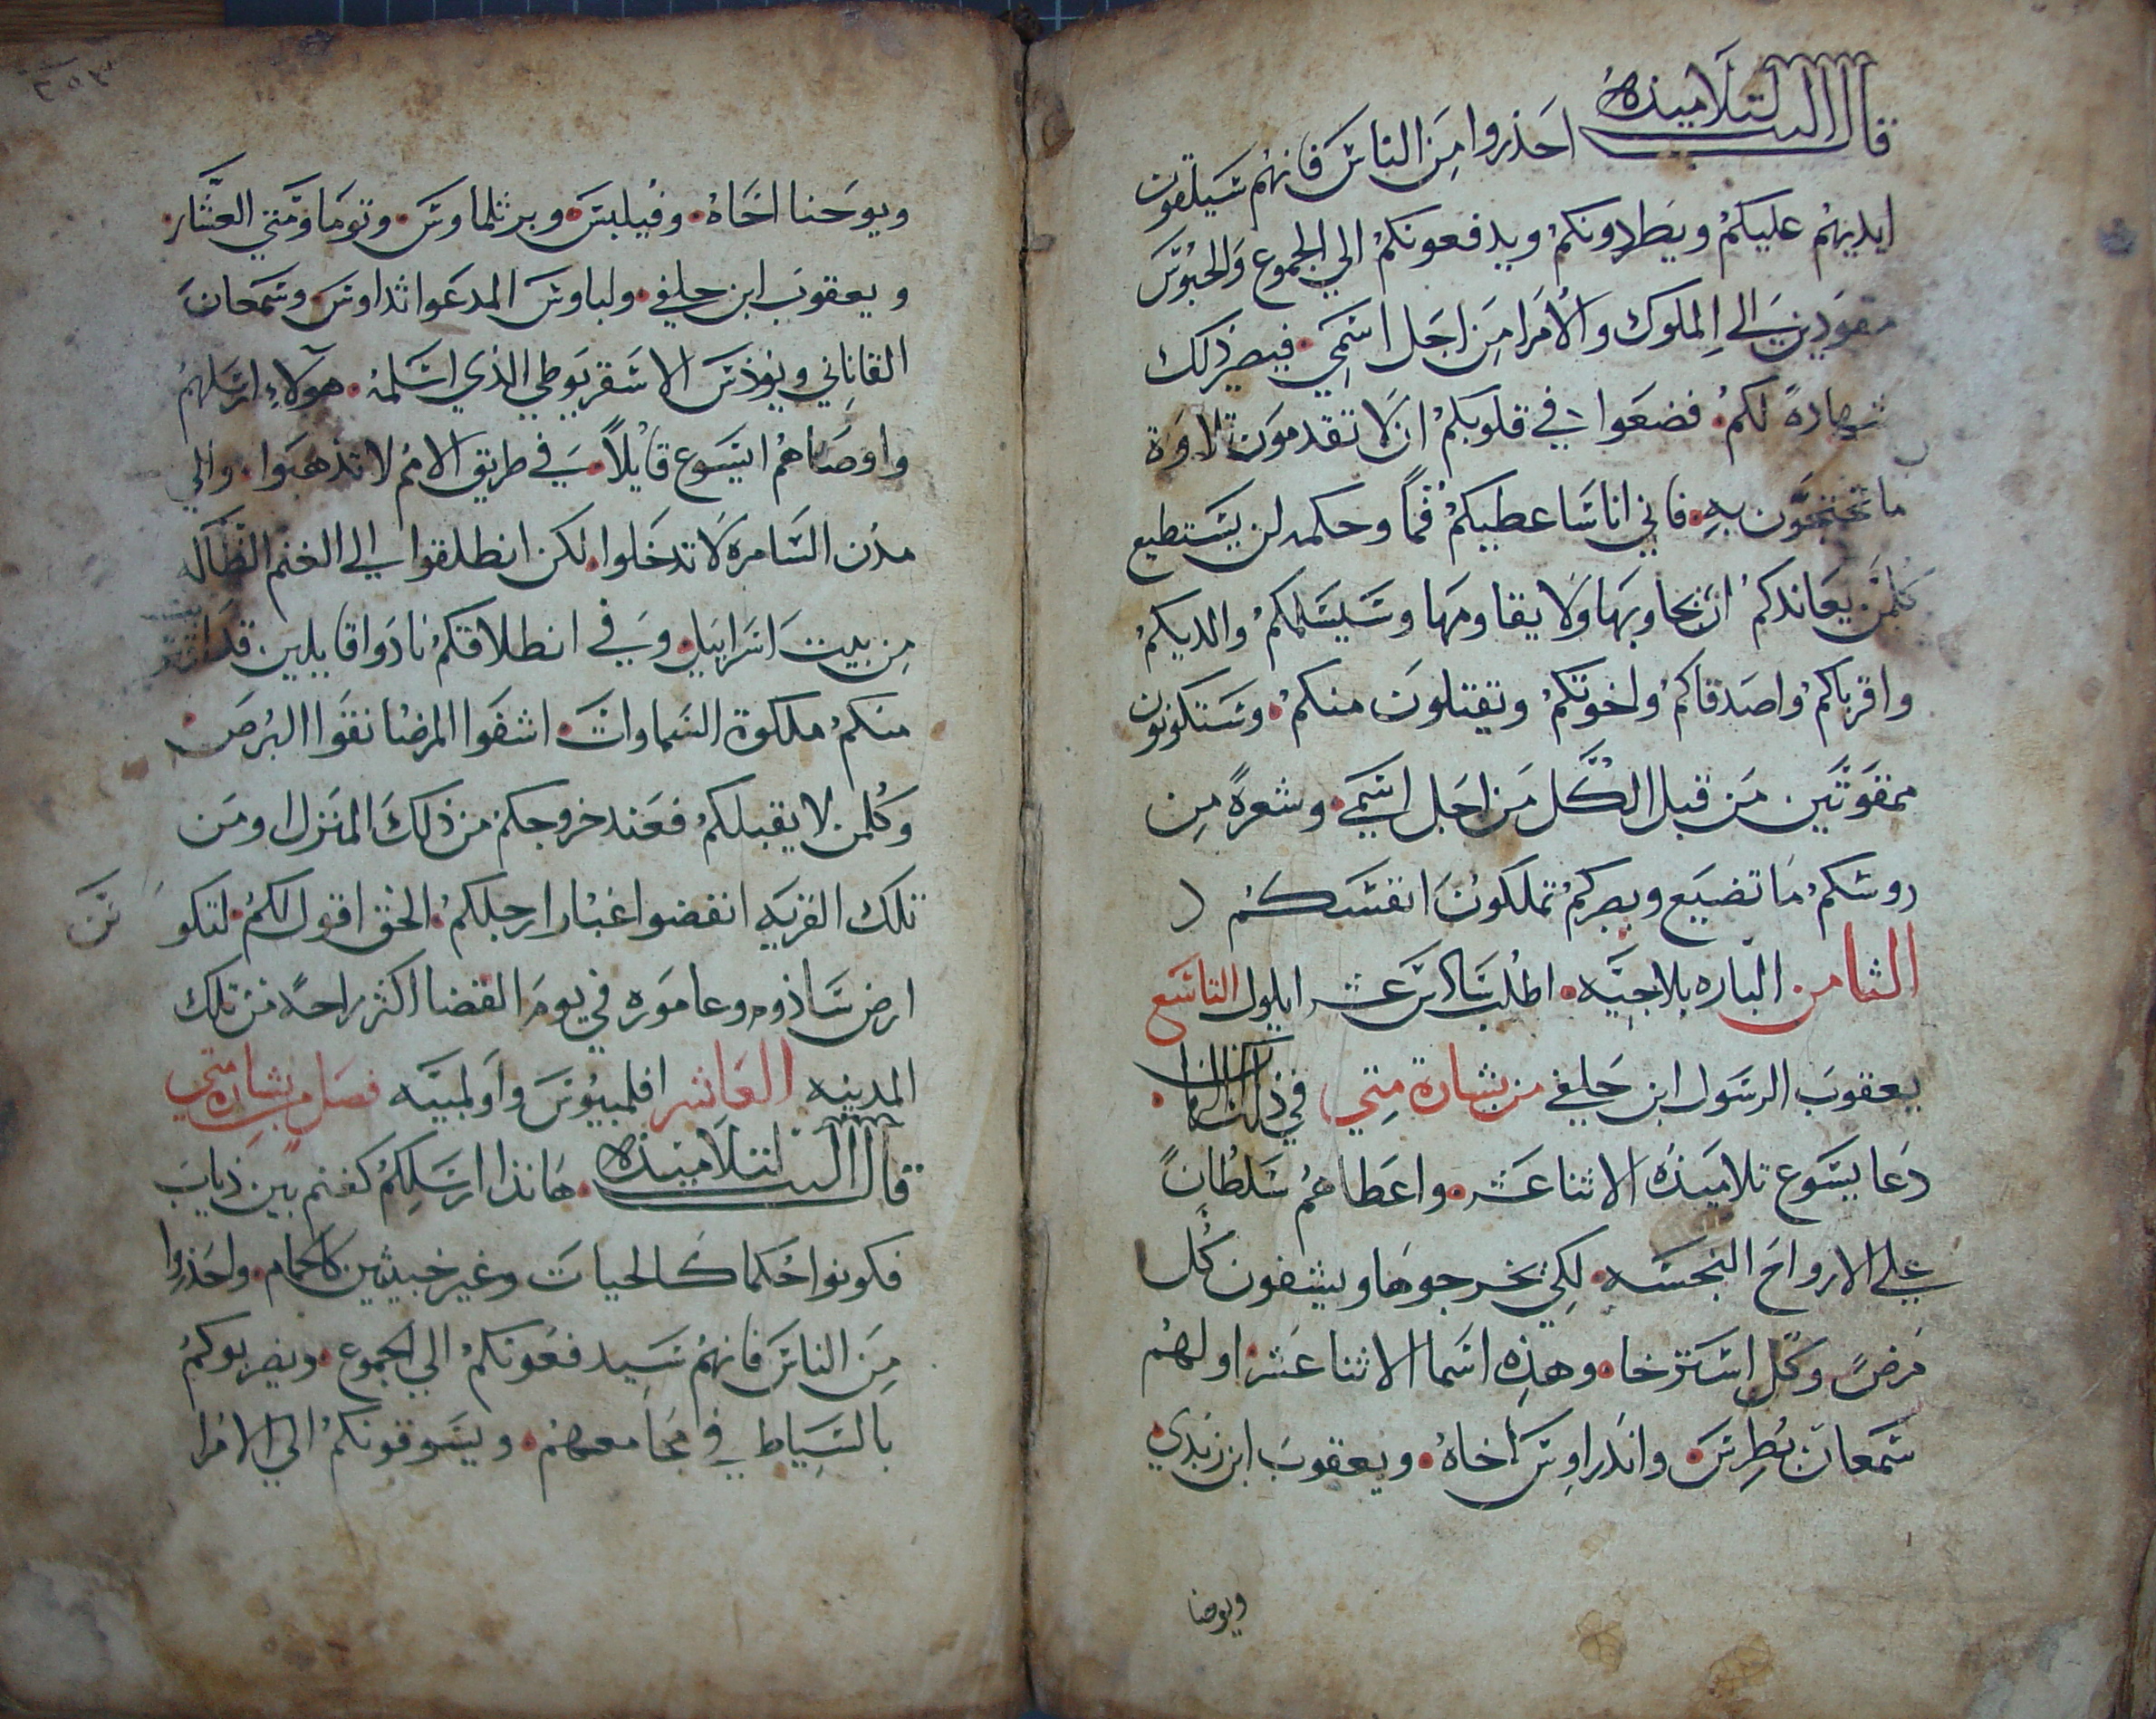 قال الرب لتلاميذه احذروا من الناس فانهم سيلقون
ايديهم عليكم ويطردونكم ويدفعونكم الي الجموع والحبوس
مقودين الي الملوك والامرا من اجل اسمي فيصير ذلك
شهادة لكم فضعوا في قلوبكم ان لا تقدمون تلاوة
ما تحتجون به فاني انا ساعطيكم فما وحكمه لن يستطيع
كلمن يعاندكم ان يجاوبها ولا يقاومها وسيسلمكم والديكم
واقرباكم واصدقاكم واخوتكم وتقتلون منكم وستكونون
ممقوتين من قبل الكل من اجل اسمي وشعرة من
روسكم ما تضيع وبصبركم تملكون انفسكم
الثامن الباره بلاجيه اطلب سادس عشر ايلول التاسع
يعقوب الرسول ابن حلفي من بشارة متي في ذلك الزمان
دعا يسوع تلاميذه الاثنا عشر واعطاهم سلطانا
علي الارواح النجسه لكي يخرجوها ويشفون كل
مرض وكل استرخا وهذه اسما الاثنا عشر اولهم
سمعان بطرس واندراوس اخاه ويعقوب ابن زبدي
ويوحنا
ويوحنا اخاه وفيلبس وبرثلماوس وتوما ومتي العشار
ويعقوب ابن حلفي ولباوس المدعوا تداوس وسمعان
القاناني ويوذس الاسقريوطي الذي اسلمه هولاء ارسلهم
واوصاهم ايسوع قايلا في طريق الامم لا تذهبوا والي
مدن السامره لا تدخلوا لكن انطلقوا الي الغنم الظاله
من بيت اسراييل وفي انطلاقكم نادوا قايلين قد اقترب
منكم ملكوة السماوات اشفوا المرضا نقوا البرص
وكلمن لا يقبلكم فعند خروجكم من ذلك المنزل او من
تلك القريه انفضوا غبار ارجلكم الحق اقول لكم لتكونن
ارض ساذوم وعاموره في يوم القضا اكثر راحة من تلك
المدينه العاشر افلمبيوس واولمبيه فصل من بشارة متي
قال الرب لتلاميذه هانذا ارسلكم كغنم بين ذياب
فكونوا حكما كالحيات وغير خبيثين كالحمام واحذروا
من الناس فانهم سيدفعونكم الي الجموع ويضربوكم
بالسياط في مجامعهم ويسوقونكم الي الامرا